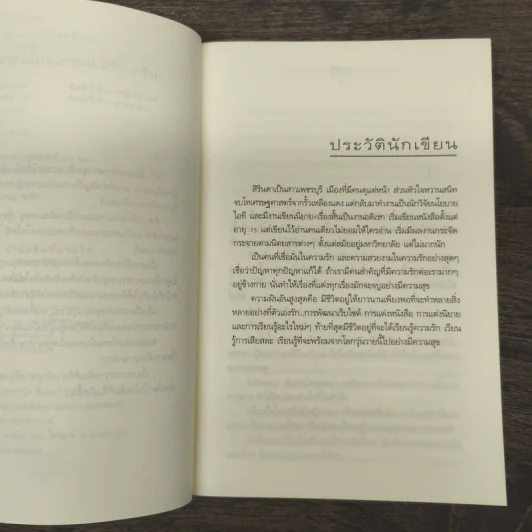 ประวัตินักเขียน
สิรินดาเป็นสาวเพชรบุรี เมืองที่มีคนดุแต่หน้า ส่วนหัวใจหวานสนิท
จบโทเศรษฐศาสตร์จากรั้วเหลืองแดง แต่กลับมาทำงานเป็นนักวิจัยนโยบาย
ไอที และมีงานเขียนนิยาย+เรื่องสั้นเป็นงานอดิเรก เริ่มเขียนหนังสือตั้งแต่
อายุ 15 แต่เขียนไว้อ่านคนเดียวไม่ยอมให้ใครอ่าน เริ่มมีผลงานกระจัด
กระจายตามนิตยสารต่างๆ ตั้งแต่สมัยอยู่มหาวิทยาลัย แต่ไม่มากนัก
เป็นคนที่เชื่อมั่นในความรัก และความสวยงามในความรักอย่างสุดๆ
เชื่อว่าปัญหาทุกปัญหาแก้ได้ ถ้าเรามีคนสำคัญที่มีความรักต่อเรามากๆ
อยู่ข้างกาย นั่นทำให้เรื่องที่แต่งทุกเรื่องมักจะจบอย่างมีความสุข
ความฝันอันสูงสุดคือ มีชีวิตอยู่ให้ยาวนานเพียงพอที่จะทำหลายสิ่ง
หลายอย่างที่ตัวเองรัก..การพัฒนาเว็บไซต์ การแต่งหนังสือ การแต่งนิยาย
และการเรียนรู้อะไรใหม่ๆ ท้ายที่สุดมีชีวิตอยู่ที่จะได้เรียนรู้ความรัก เรียน
รู้การเสียสละ เรียนรู้ที่จะพร้อมจากโลกวุ่นวายนี้ไปอย่างมีความสุข